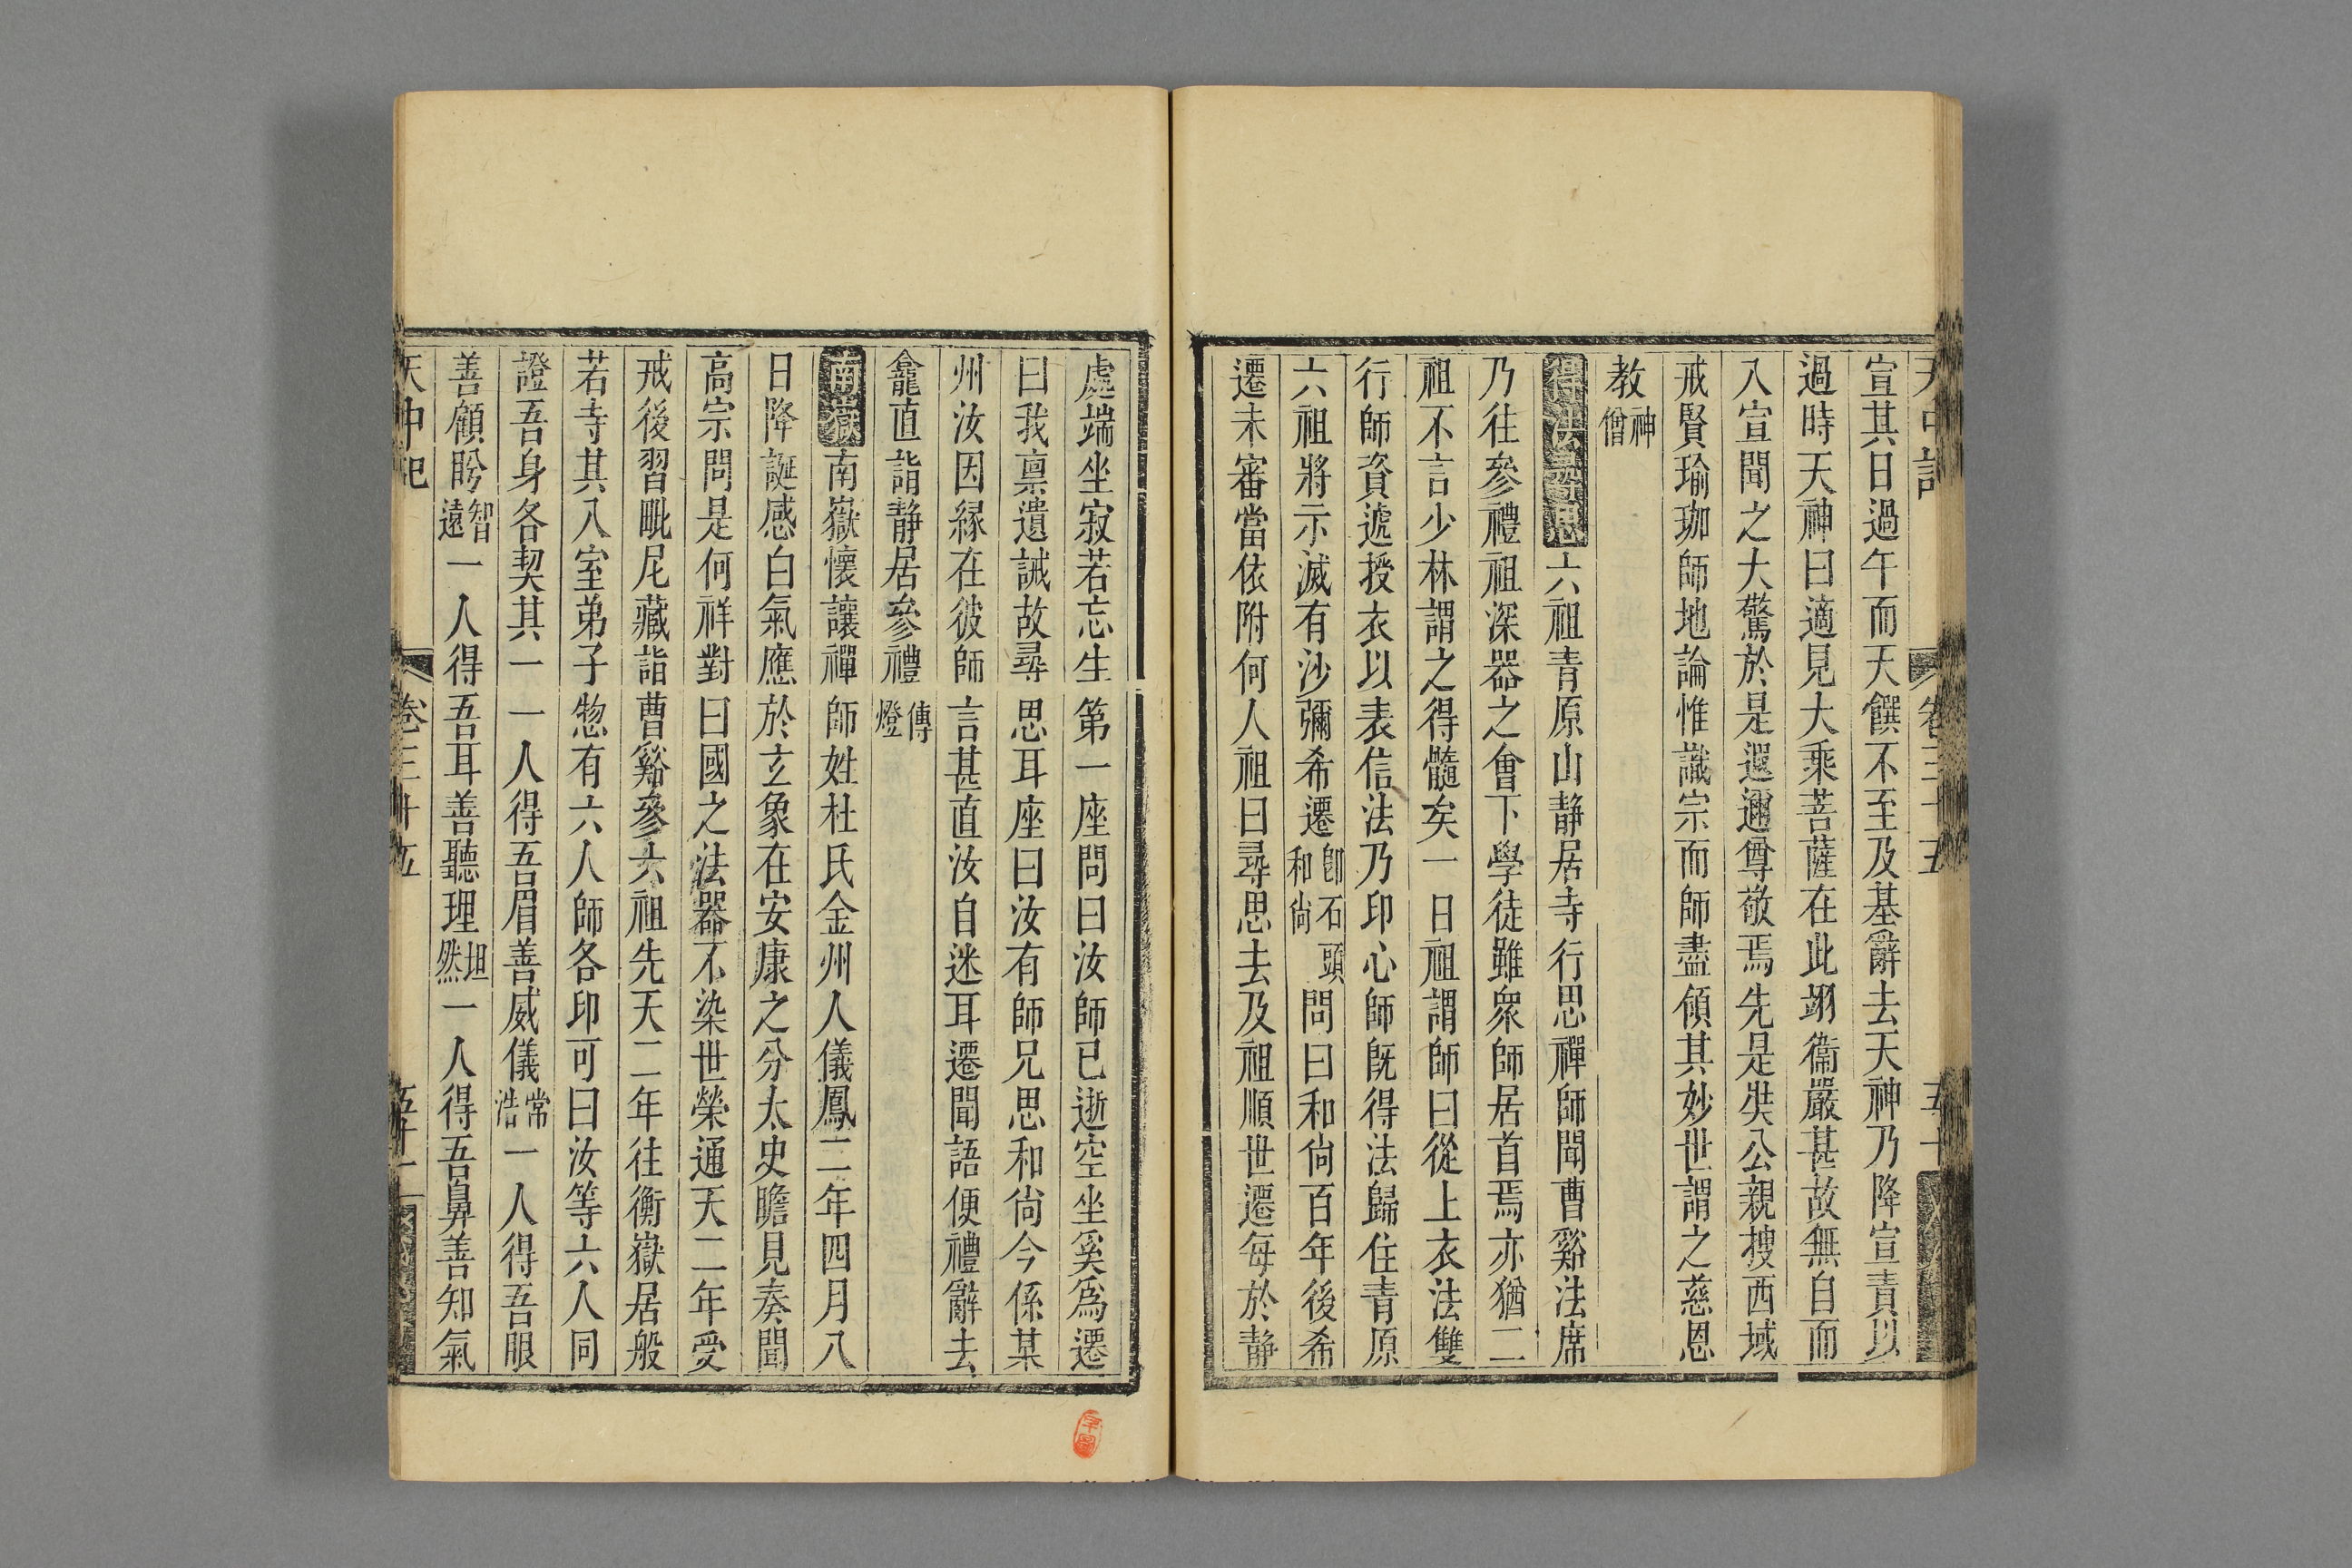 天中記 卷三十五 五十
宣其日過午而天饌不至及基辭去天神乃降宣責以
過時天神曰適見大乘菩薩在此翊衞嚴甚故無自而
入宣聞之大驚於是遐邇尊敬焉先是奘公親搜西域
戒賢瑜珈師地論惟識宗而師盡傾其妙世謂之慈恩
教神僧
得法尋思六祖青原山静居寺行思禪師聞曹谿法席
乃往參禮祖深器之會下學徒雖衆師居首焉亦猶二
祖不言少林謂之得髓矣一日祖謂師曰從上衣法雙
行師資遞授衣以表信法乃印心師旣得法歸住青原
六祖將示滅有沙彌希遷卽石頭和尙問曰和尙百年後希
遷未審當依附何人祖曰尋思去及祖順世遷每於静
處端坐寂若忘生第一座問曰汝師已逝空坐奚爲遷
曰我稟遺誡故尋思耳座曰汝有師兄思和尙今係某
州汝因緣在彼師言甚直汝自迷耳遷聞語便禮辭去
龕直詣静居參禮傳燈
南嶽南嶽懷讓禪師姓杜氏金州人儀鳳二年四月八
日降誕感白氣應於玄象在安康之分太史瞻見奏聞
高宗問是何祥對曰國之法器不染世榮通天二年受
戒後習毗尼藏詣曹谿參六祖先天二年往衡嶽居般
若寺其入室弟子惣有六人師各印可曰汝等六人同
證吾身各契其一一人得吾眉善威儀常浩一人得吾眼
善顧盻智遠一人得吾耳善聽理坦然一人得吾鼻善知氣
天中記 卷三十五 五十一